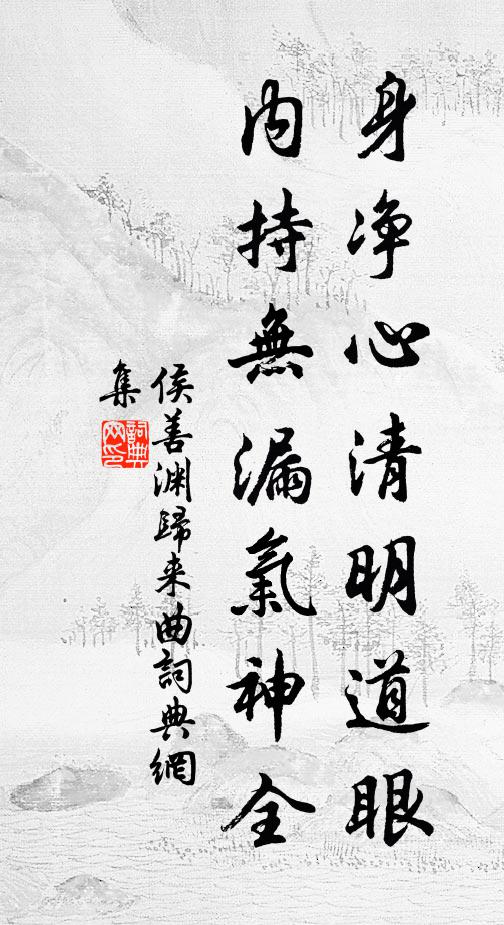 身净心清明道眼
内持無漏氣神全
侯善渊歸来曲詞典網
集
詞典网印